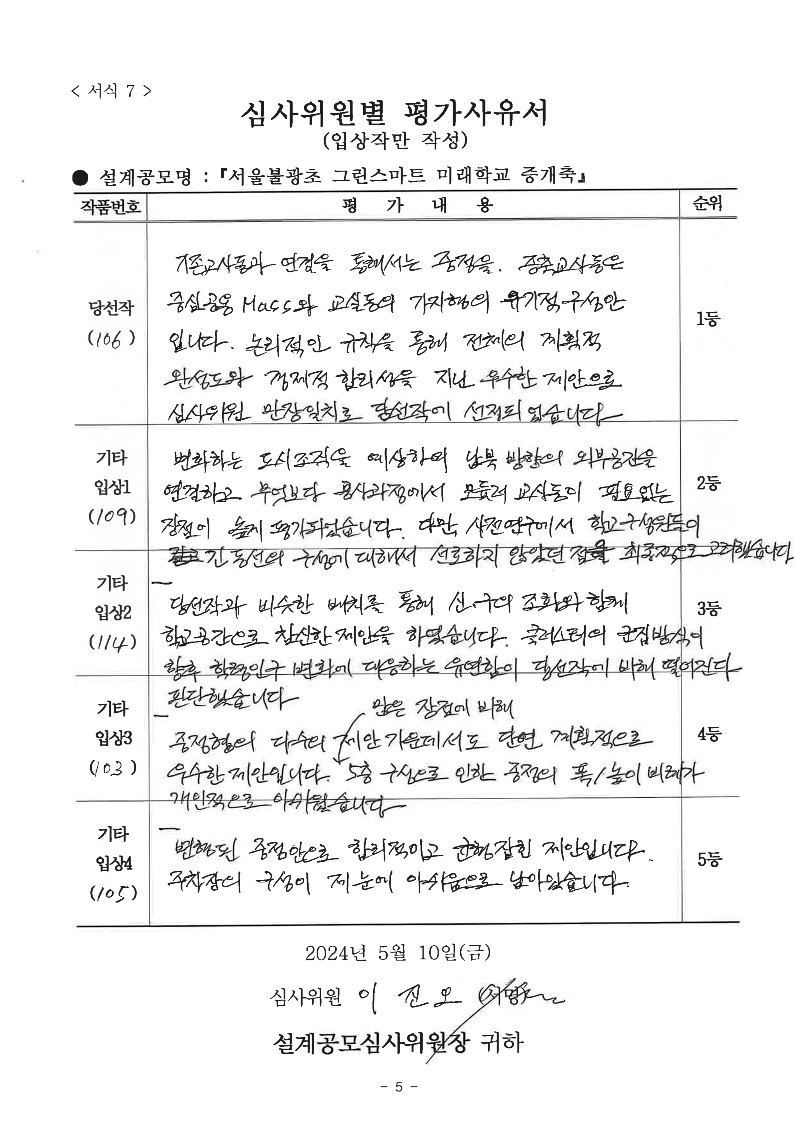 < 서식 7 >
심사위원별 평가사유서
(입상작만 작성)
● 설계공모명 : 『서울불광초 그린스마트 미래학교 증개축』
작품번호 평 가 내 용 순위
당선작
(106)
1등
기존교사동과 연결을 통해서는 중정을. 증축교사동은
중심공용 Mass와 교실동의 가지형의 유기적 구성안
입니다. 논리적인 규칙을 통해 전체의 계획적
완성도와 경제적 합리성을 지닌 우수한 제안으로
심사위원 만장일치로 당선작에 선정되었습니다
기타
입상1
(109)
2등
변화하는 도시조직을 예상하여 남북 방향의 외부공간을
연결하고 무엇보다 공사과정에서 모듈러 교사동이 필요없는
장점이 높게 평가되었습니다. 다만 사전연구에서 학교구성원들이
긴 동선의 구성에 대해서 선호하지 않았던 점을 최종적으로 고려했습니다
기타
입상2
(114)
3등
당선작과 비슷한 배치를 통해 신·구의 조화와 함께
학교공간으로 참신한 제안을 하였습니다. 클러스터의 군집방식이
향후 학령인구 변화에 대응하는 유연함이 당선작에 비해 떨어진다
판단했습니다
기타
입상3
(103)
4등
많은 장점에 비해
중정형의 다수의 제안 가운데서도 단연 계획적으로
우수한 제안입니다. 5층 구성으로 인한 중정의 폭/높이 비례가
개인적으로 아쉬웠습니다
기타
입상4
(105)
5등
변형된 중정안으로 합리적이고 균형잡힌 제안입니다.
주차장의 구성이 제 눈에 아쉬움으로 남아있습니다.
2024년 5월 10일(금)
심사위원 이 진 오 (서명)
설계공모심사위원장 귀하
- 5 -